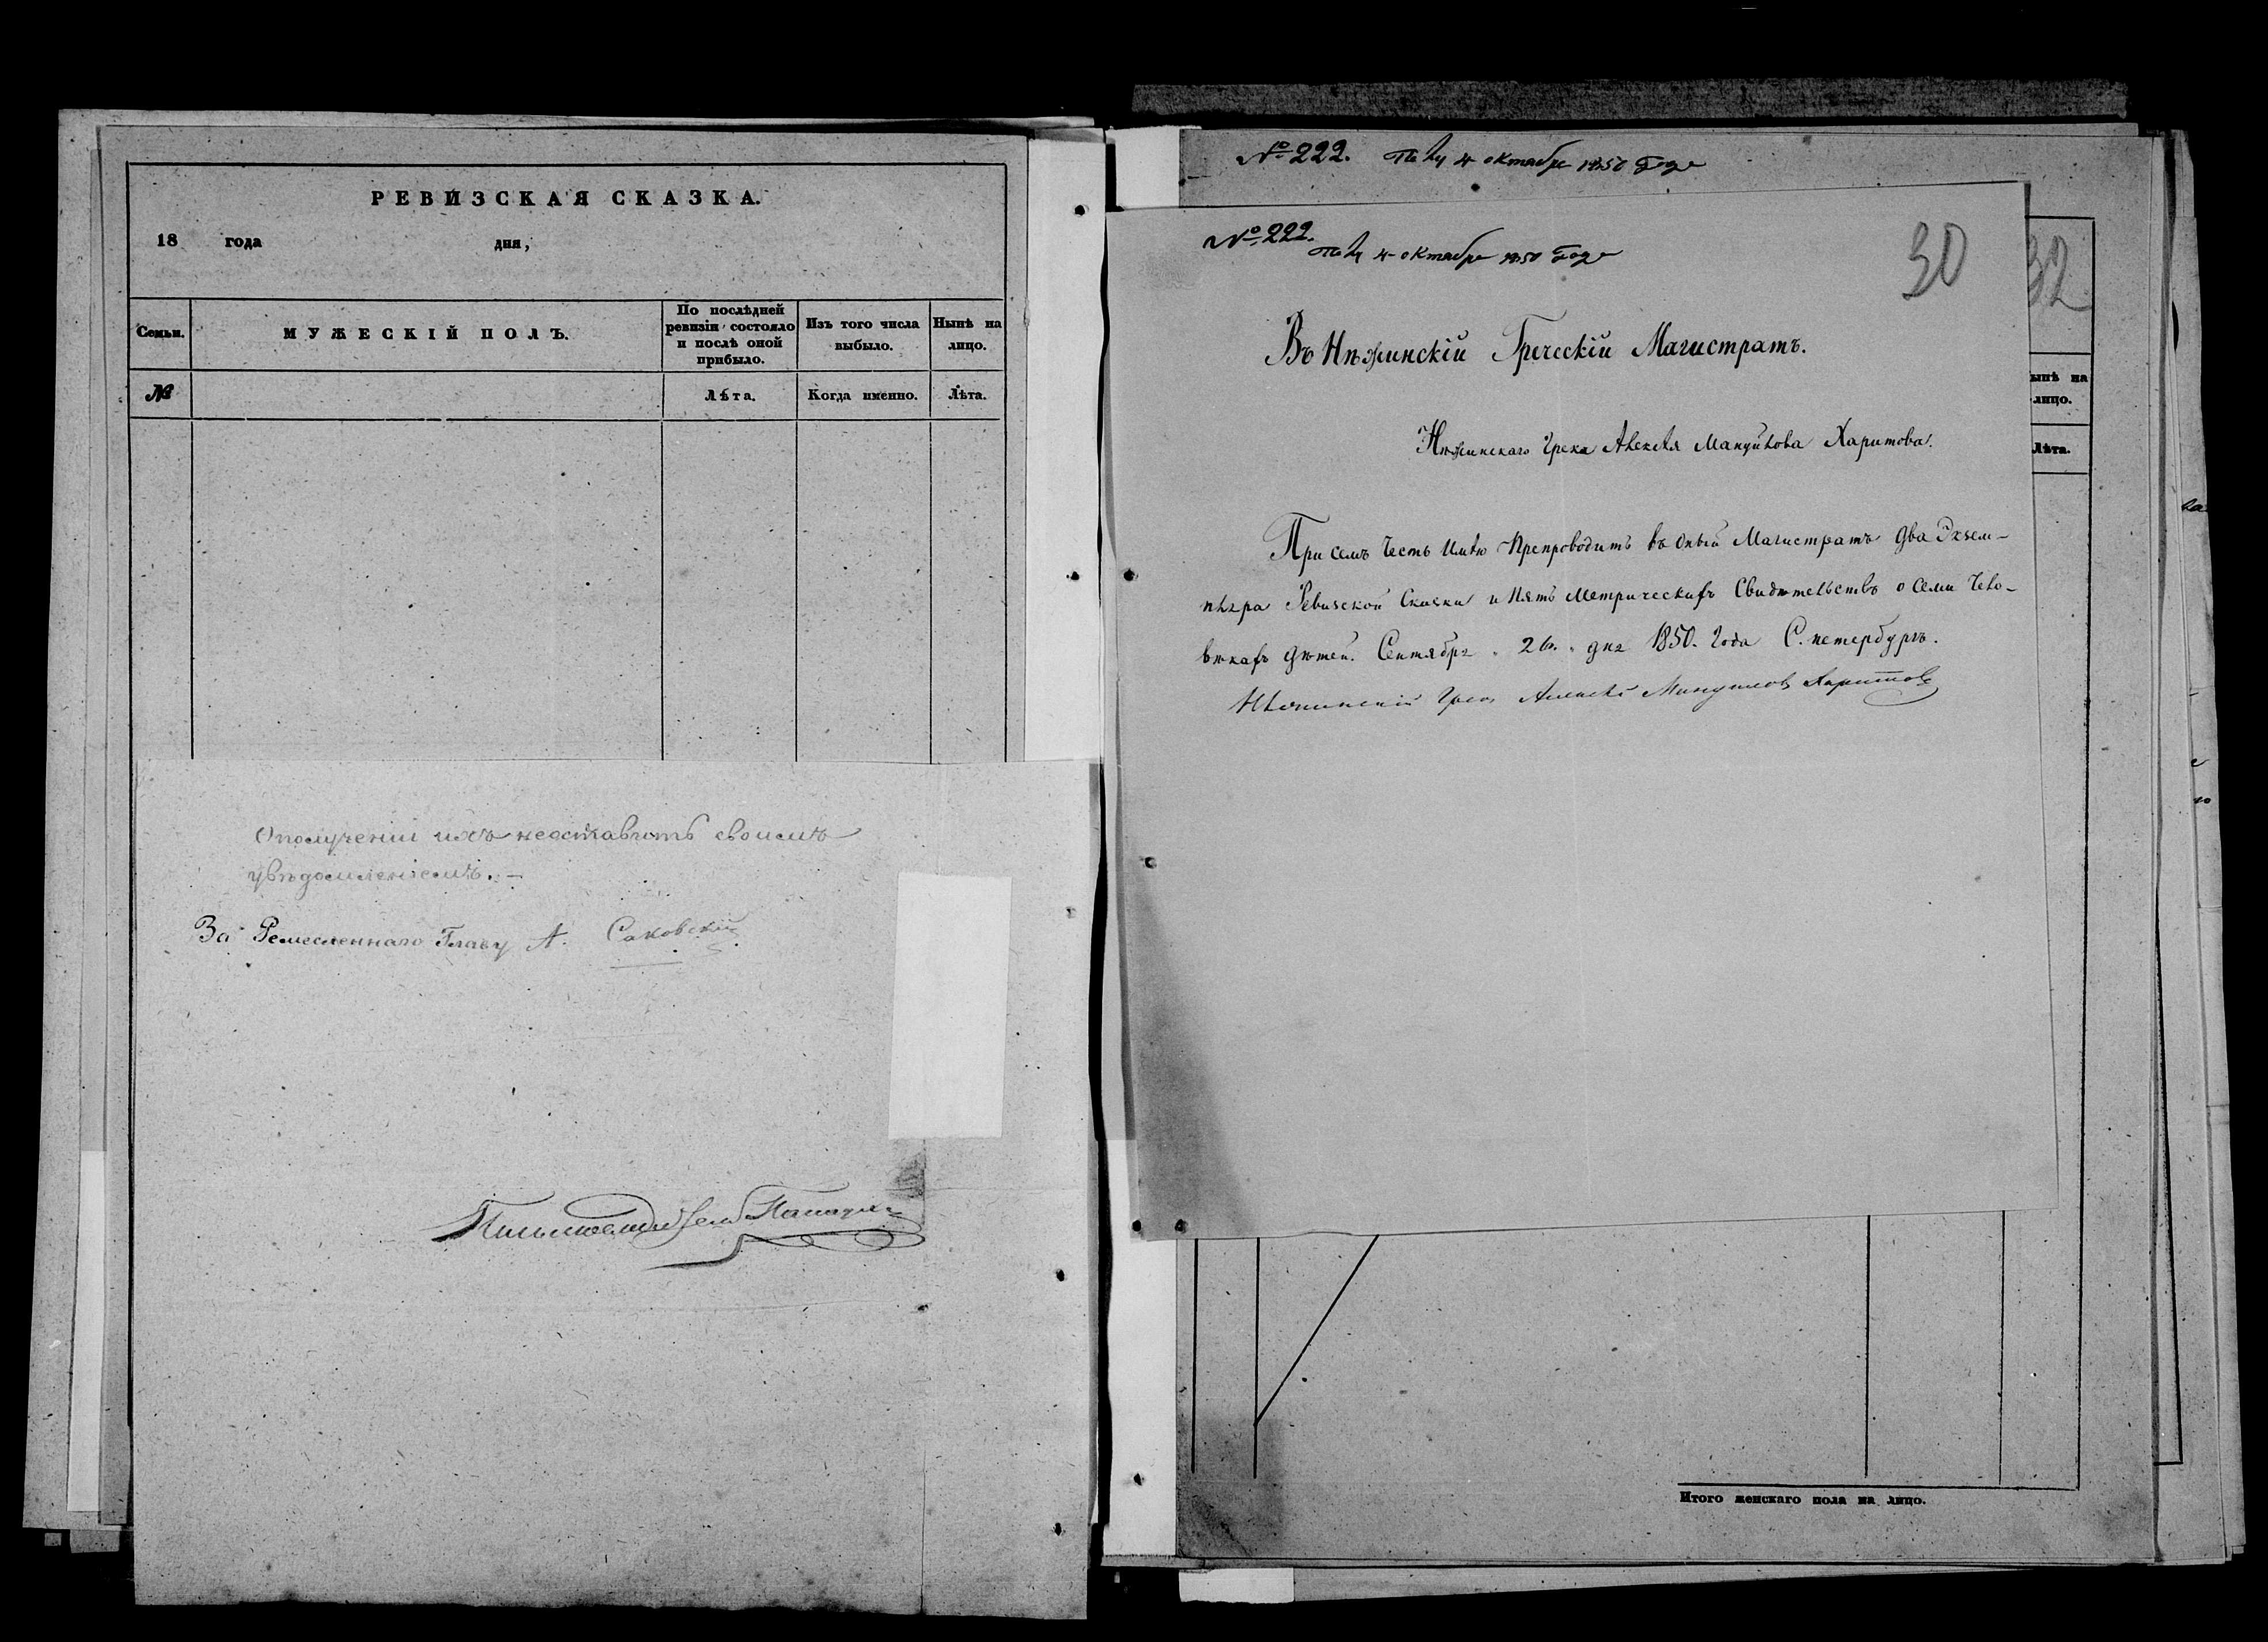 РЕВИЗСКАЯ СКАЗКА.
18 года дня,
Семьи.
МУЖЕСКІЙ ПОЛЪ.
По послѣдней ревизіи состояло и послѣ оной прибыло.
Изъ того числа выбыло.
Нынѣ на лицо.
№
Лѣта.
Когда именно.
Лѣта.
О получении ихъ неоставить своимъ
увѣдомленіемъ. –
За Ремесленнаго Главу А. Саковскій
№ 222. 4 октября 1850 Года
№ 222.
4 октября 1850 Года
30
32
ынѣ на
лицо.
Лѣта.
Въ Нѣжинскій Греческій Магистратъ.
Нѣжинскаго Грека Алексѣя Мануйлова Харитова.
При семъ Честь Имѣю Препроводить въ Оный Магистратъ Два Экзем-
пляра Ревизской Сказки и Пять Метрическихъ Свидѣтельствъ о Семи Чело-
вѣкахъ Дѣтей. Сентября 26. дня 1850. Года С. петербургъ.
Нѣжинскій Грекъ Алексѣй Мануиловъ Харитовъ
Итого женскаго пола на лицо.